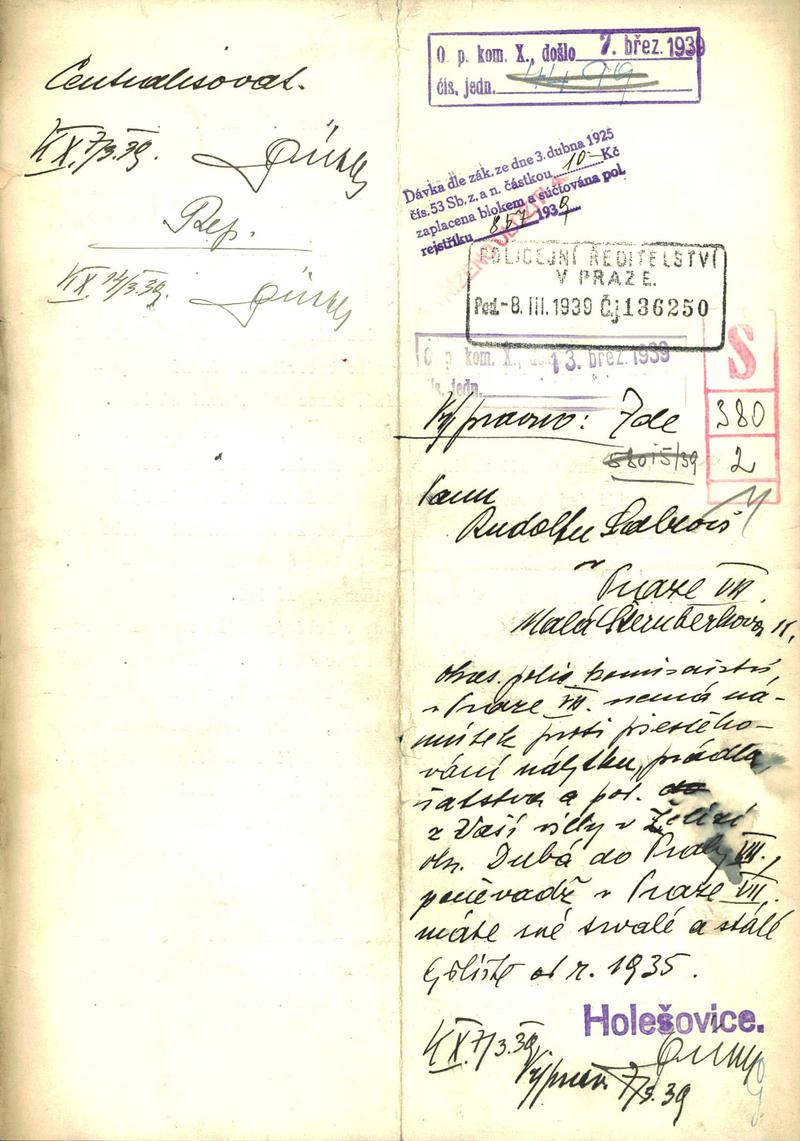 Centralisovat.
K X. 7/3.39.
Rep.
K X. 14/3.39.
O. p. kom. X., došlo 7. břez. 1939
čís. jedn. 4499
Dávka dle zák. ze dne 3. dubna 1925
čís. 53 Sb. z. a n. částkou 10.- Kč
zaplacena blokem a súčtována pol.
rejstříku 857 1939
POLICEJNÍ ŘEDITELSTVÍ
V PRAZE.
Pod. -8. III. 1939 Čj 136250
O. p. kom. X., došlo 13. břez. 1939
čís. jedn.
S
380
2
Vypraveno: Zde
58015/39
Panu
Rudolfu
v
Praze VII.
Malá Šternberkova 11.
okres. polic. komisařství
v Praze VII. nemá ná-
mitek proti přestěho-
vání nábytku, prádla
šatstva a pod. do
z Vaší villy v Želízí
okr. Dubá do Prahy VII.,
poněvadž v Praze VII.
máte své trvalé a stálé
bydliště od r. 1935.
Holešovice.
K X. 7/3.39.
Vyprav. 7/3.39